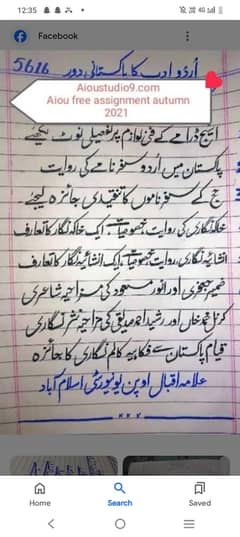 12:35
4G
Facebook
اُردو ادب کا پاکستانی دور 5616
Aioustudio9.com
Aiou free assignment autumn
2021
اسٹیج ڈرامے کے فنی لوازم پر تفصیلی نوٹ لکھیے
پاکستان میں اُردو سفرنامے کی روایت
حج کے سفرناموں کا تنقیدی جائزہ لیجئے
خاکہ نگاری کی روایت خصوصیات ایک خاکہ نگار کا تعارف
انشائیہ نگاری روایت خصوصیات ایک انشائیہ نگار کا تعارف
ضمیر جعفری اور انور مسعود کی مزاحیہ شاعری
کرنل محمد خان اور رشید احمد صدیقی کی مزاحیہ نثر نگاری
قیام پاکستان سے فکاہیہ کالم نگاری کا جائزہ
علامہ اقبال اوپن یونیورسٹی اسلام آباد
Home
Search
Saved